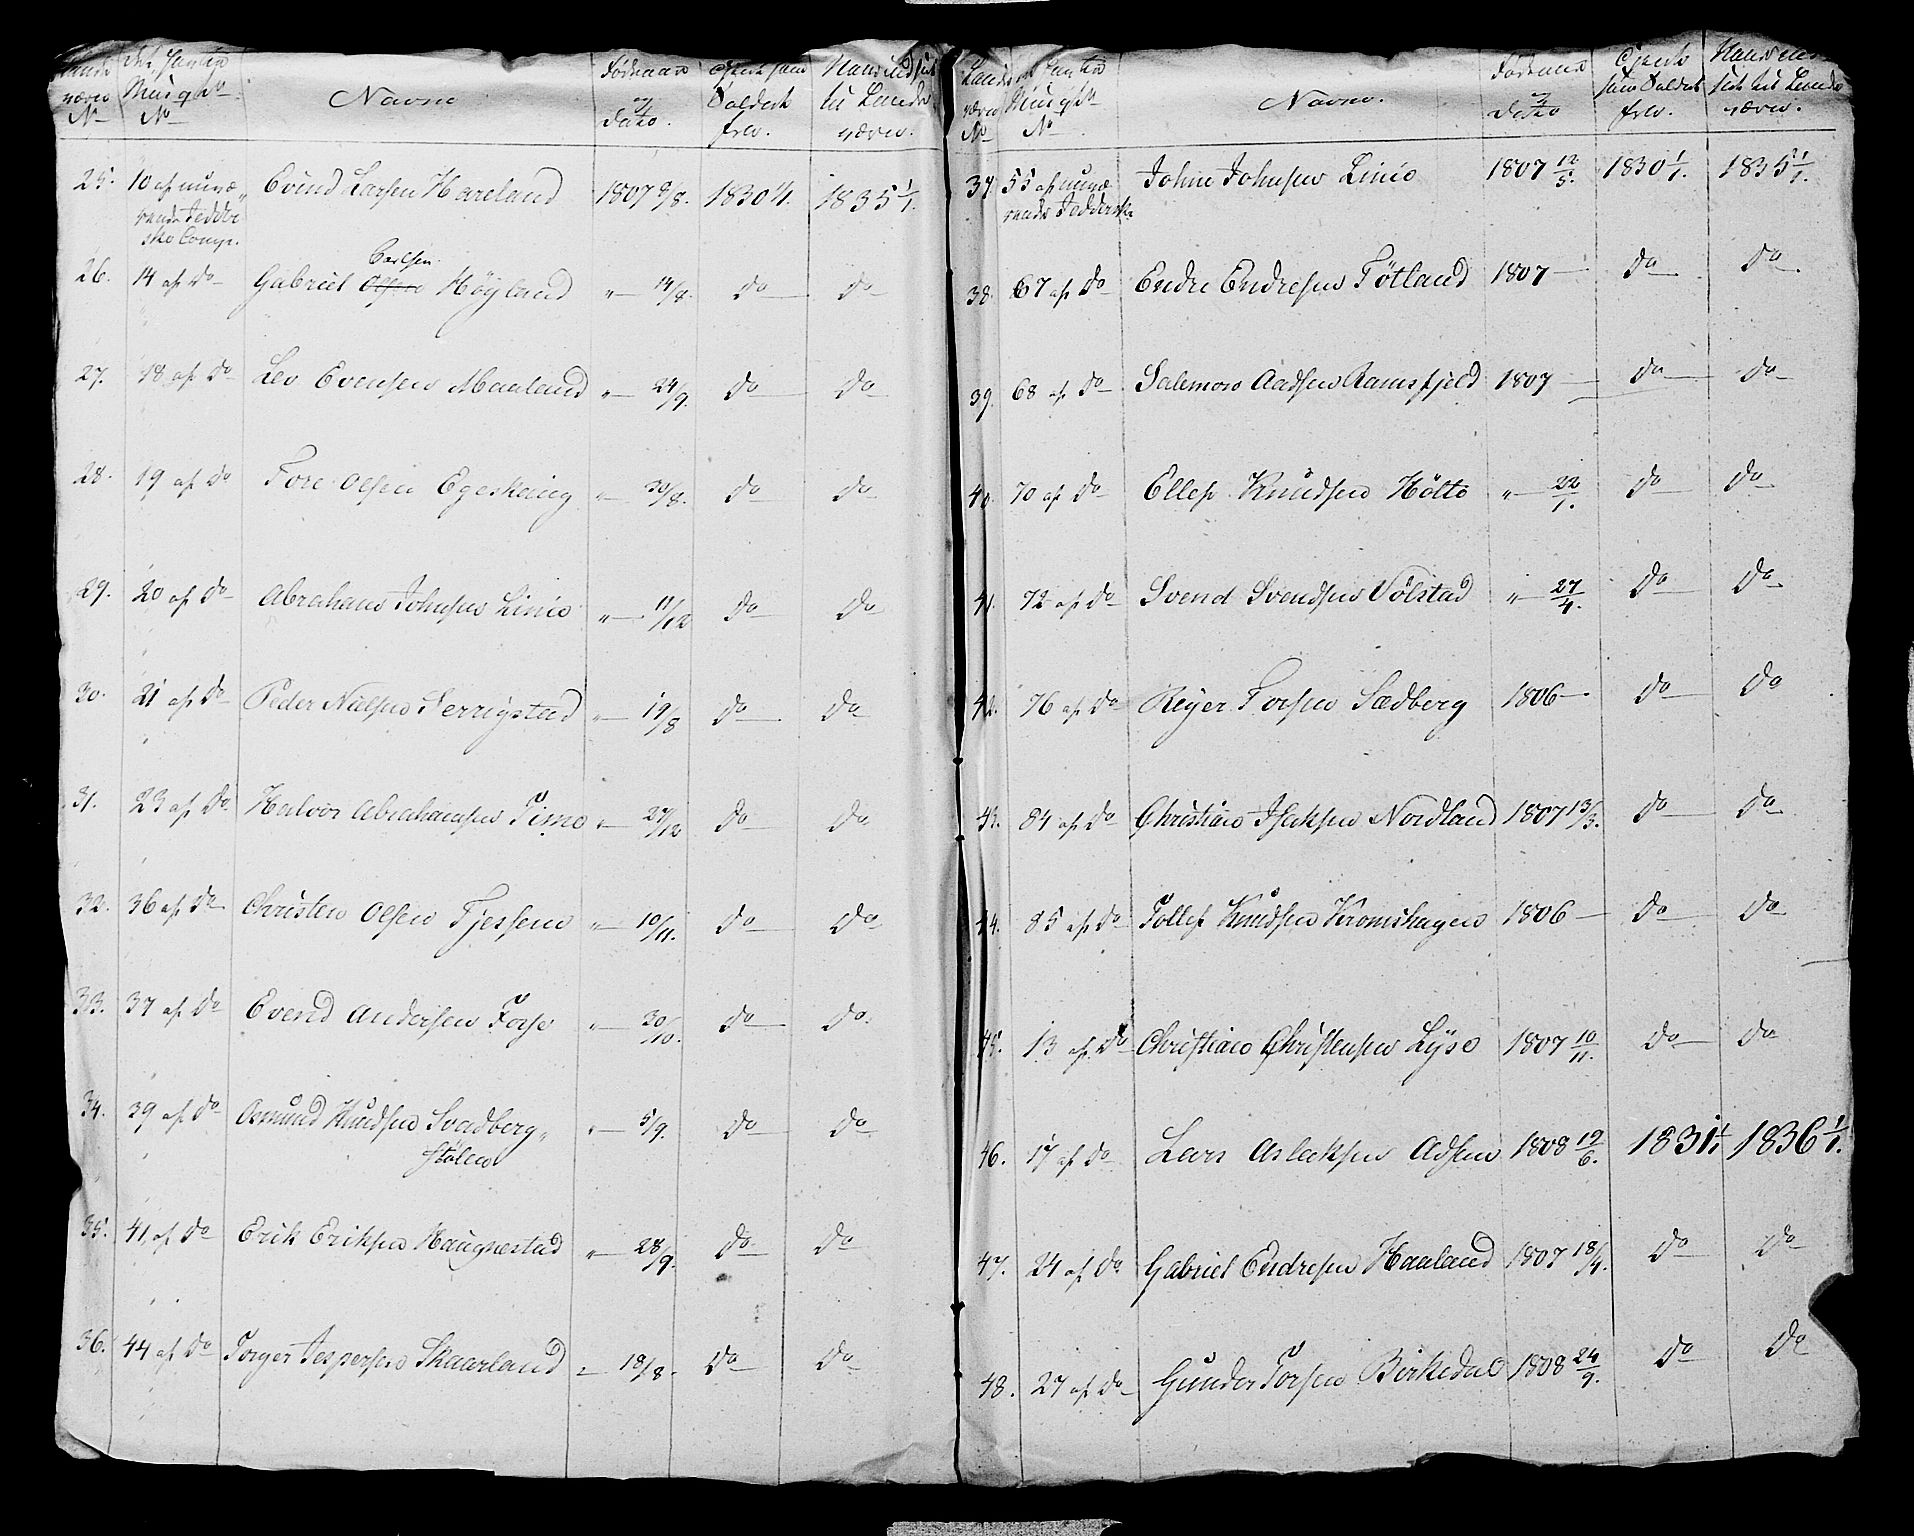 Navne
Fødsaar og Dato.
Tjent som Soldat fra.
25. 10 af nuvæ- Evend Larsen Hareland 1807 9/8. 1830 1/1. 1835 1/1.
rende Jedder-
ske Comp.
Carlsen
26. 14 af Do Gabriel Olsen Høyland " 14/8. Do Do
27. 18 af Do Lev Evensen Maaland " 24/9. Do Do
28. 19 af Do Tore Olsen Egeskoug " 30/8. Do Do
29. 20 af Do Abraham Johnsen Linie " 11/12 Do Do
30. 21 af Do Peder Nielsen Serrigstad " 19/8 Do Do
31. 23 af Do Halvor Abrahamsen Time " 27/12 Do Do
32. 36 af Do Christen Olsen Tjessem " 10/11. Do Do
33. 37 af Do Evend Andersen Torse " 30/10. Do Do
34. 39 af Do Asmund Knudsen Svadberg- " 5/9. Do Do
stølen
35. 41 af Do Erik Eriksen Haugnestad " 28/9. Do Do
36. 44 af Do Torger Jespersen Skaarland " 18/8. Do Do
Navne.
Fødsaar og Dato
Tjent som Soldat fra.
37. 55 af nuvæ- John Johnsen Linie 1807 12/5. 1830 1/1. 1835 1/1.
rende Jedderske
38. 67 af Do Endre Endresen Tøtland 1807 Do Do
39. 68 af Do Salomon Aadsen Ramsfjeld 1807 Do Do
40. 70 af Do Ellef Knudsen Høtte " 22/1. Do Do
41. 72 af Do Svend Svendsen Vølstad " 27/4. Do Do
42. 76 af Do Reyer Torsen Sædberg 1806 Do Do
43. 84 af Do Christian Isaksen Nordland 1807 13/3. Do Do
44. 85 af Do Tollef Knudsen Kromshagen 1806 Do Do
45. 13 af Do Christian Christensen Lyse 1807 10/11. Do Do
46. 17 af Do Lars Aslaksen Adsen 1808 19/6. 1831 1/1. 1836 1/1.
47. 24 af Do Gabriel Endresen Haaland 1807 18/4. Do Do
48. 27 af Do Gunder Torsen Birkedal 1808 24/9. Do Do